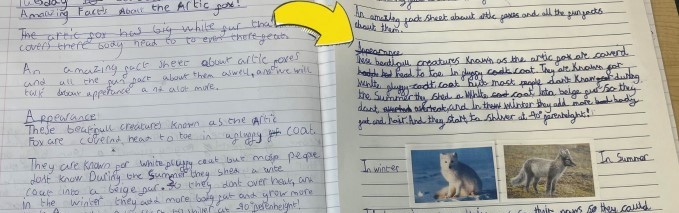 Amazing Facts About the Artic fox!
The artic fox has big white fur that
covers there body head to
An amazing fact sheet about artic foxes
and all the fun fact about them aswell, and we will
talk about apperance and alot more.
Appearance
These beatifull creatures known as the Artic
Fox are coverd, head to toe in a fluffy coat.
They are known for white fluffy coat but most people
dont know During the Summer they shed a white
coat into a beige fur. So they dont over heat, and
in the winter they add more body fat and grow more
An amazing fact sheet about artic foxes and all the fun facts
about them.
Appearance
These beatifull creatures known as the artic fox are coverd
head to toe in fluffy coat. They are known for
white fluffy coat but most people dont know during
the Summer they shed a white coat into beige fur So they
dont overheat, and in winter they add more body
fat and hair. And they start to shiver at
In winter
In Summer
paws so they could